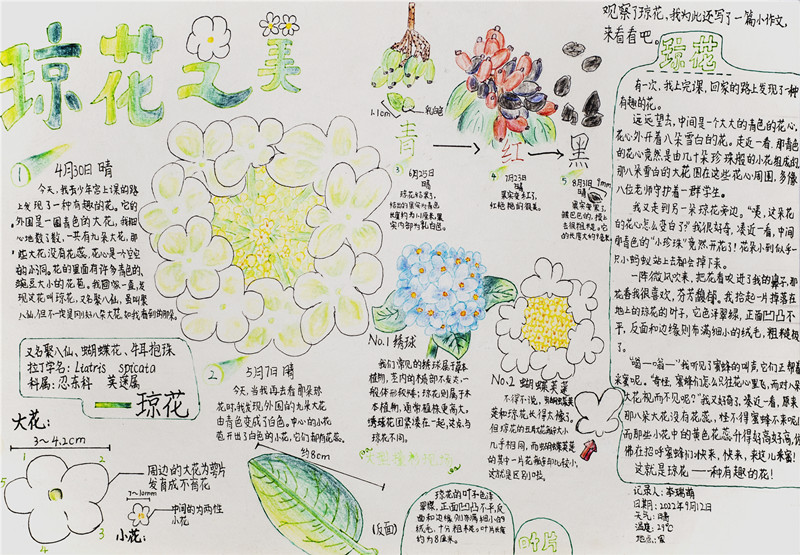 琼花之美
① 4月30日 晴
今天，我去少年宫上课的路
上发现了一种有趣的花。它的
外围是一圈青色的大花，我细
心地数了数，一共有九朵大花，那
些大花没有花蕊，花心是一个空空
的小洞。花的里面有许多青色的、
豌豆大小的花苞。我回家一查，发
现这花叫琼花，又名聚八仙，虽叫聚
八仙，但不一定是刚好八朵大花
又名聚八仙、蝴蝶花、牛耳抱珠
拉丁学名：Liatris spicata
科属：忍冬科 荚蒾属
琼花
大花：
3～4.2cm
1
2
3
4
5
周边的大花为萼片
发育成不育花
7～10mm
中间的为两性
小花
小花：
② 5月7日 晴
今天，当我再去看那朵琼
花时，我发现，外围的九朵大花
由青色变成了白色。中心的小花
苞开出了白色的小花，它们都有花蕊。
约8cm
(反面)
琼花的叶子色泽
翠绿，正面凹凸不平，反
面和边缘则布满细小的
绒毛，十分粗糙。叶片长度
约为8厘米。
叶片
1.1cm
乳白色
青
红
黑
3 6月25日
晴
琼花结果了，
结出的果实为青色
长度约为1.1厘米，果
实内部为乳白色。
4 7月23日
晴
果实变红了，
红艳艳的，很美。
5 8月31日
晴
9mm
果实变黑了，
No.1 绣球
我们常见的绣球属于草本
植物，茎内的木质部不发达，一
般体形较矮；琼花则属于木
本植物，通常植株更高大。
绣球花团紧凑在一起，这点与
琼花不同。
No.2 蝴蝶荚蒾
不得不说，蝴蝶荚蒾
和琼花长得太像了。
但琼花的五片花瓣大小
几乎相同，而蝴蝶荚蒾
的其中一片花瓣却比较小，
这就是区别了啦。
观察了琼花，我为此还写了一篇小作文，
来看看吧。
琼花
有一次，我上完课，回家的路上发现了一种
有趣的花。
远远望去，中间是一个大大的青色的花心，
花心外开着八朵雪白的花。走近一看，那青色
的花心竟然是由几十朵珍珠般的小花组成的，
那八朵雪白的大花围在这些花心周围，多像
八位老师守护着一群学生。
我又走到另一朵琼花旁边。“咦，这朵花
的花心怎么变白了？”我很好奇，凑近一看，中间
的青色的“小珍珠”竟然开花了！花朵小到似乎一
只小蚂蚁站上去都会掉下来。
一阵微风吹来，把花香吹进了我的鼻子，那
花香我很喜欢，芬芳馥郁。我拾起一片掉落在
地上的琼花的叶子，它色泽翠绿，正面凹凸不
平，反面和边缘则布满细小的绒毛，粗糙极
了。
“嗡—嗡—”我听见了蜜蜂的叫声，它们正帮着
采蜜呢。“奇怪，蜜蜂们怎么只往花心里飞，而对八朵
大花视而不见呢？”我又好奇了，凑近一看，原来
那八朵大花没有花蕊，怪不得蜜蜂不来呢！
而那些小花中的黄色花蕊升得好高好高，仿
佛在招呼蜜蜂们快来，快来，来这儿采蜜！
这就是琼花——一种有趣的花！
日期：2022年9月12日
天气：晴
温度：29℃